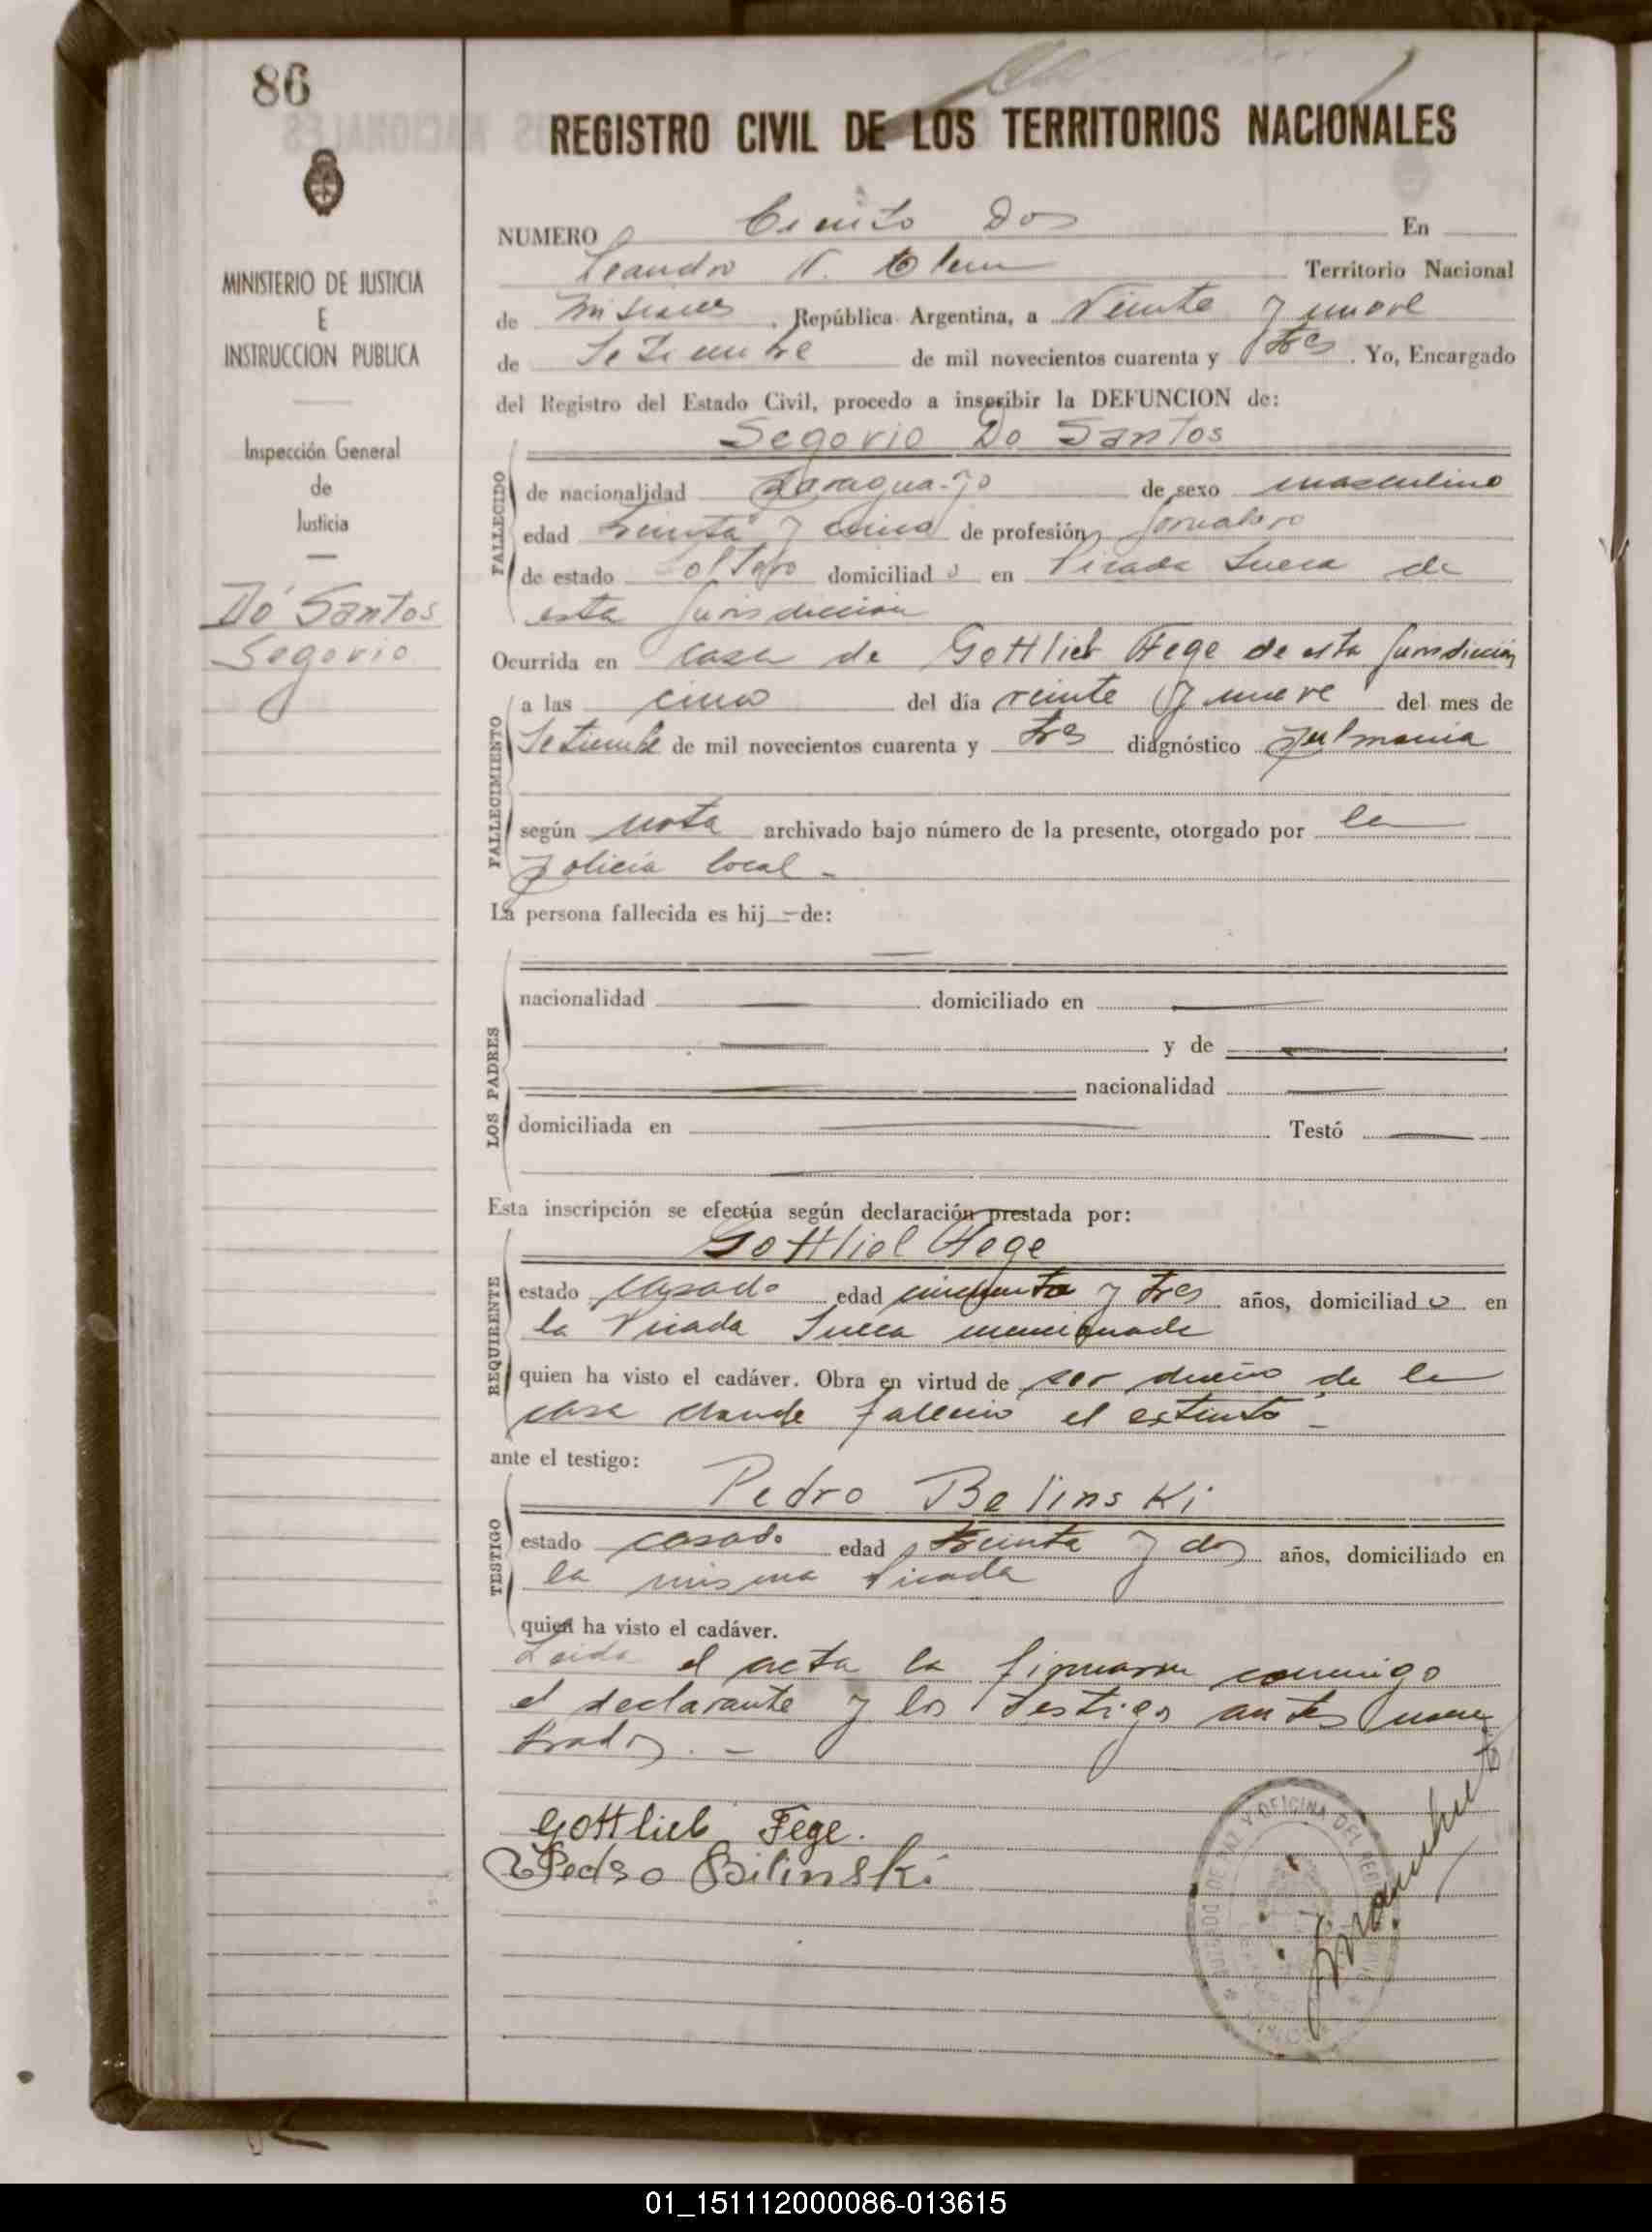 86
REGISTRO CIVIL DE LOS TERRITORIOS NACIONALES
MINISTERIO DE JUSTICIA
E
INSTRUCCION PUBLICA
Inspección General
de
Justicia
Dó Santos
Segovio
NUMERO Ciento Dos En
Leandro N. Alem Territorio Nacional
de Misiones, República Argentina, a Veinte y nueve
de Setiembre de mil novecientos cuarenta y tres. Yo, Encargado
del Registro del Estado Civil, procedo a inscribir la DEFUNCION de:
Segovio Do Santos
FALLECIDO
de nacionalidad Paraguayo de sexo masculino
edad treinta y cinco de profesión Jornalero
de estado soltero domiciliado en Picada Sueca de
esta Jurisdiccion
Ocurrida en casa de Gottlieb Fege de esta Jurisdicción
FALLECIMIENTO
a las cinco del día veinte y nueve del mes de
Setiembre de mil novecientos cuarenta y tres diagnóstico pulmonia
según nota archivado bajo número de la presente, otorgado por la
policía local -
La persona fallecida es hij - de:
LOS PADRES
nacionalidad domiciliado en
y de
nacionalidad
domiciliada en Testó
Esta inscripción se efectúa según declaración prestada por:
Gottliel Fege
REQUIRENTE
estado casado edad cincuenta y tres años, domiciliado en
la Picada Sueca mencionada
quien ha visto el cadáver. Obra en virtud de ser dueño de la
casa donde falleció el extinto -
ante el testigo:
Pedro Belinski
TESTIGO
estado casado edad treinta y dos años, domiciliado en
la misma Picada
quien ha visto el cadáver.
Leida el acta la firmaron conmigo
el declarante y los testigos antes nom
brados. -
Gottlieb Fege.
Pedro Bilinski
JUZGADO DE PAZ Y OFICINA DEL REGISTRO
01_151112000086-013615